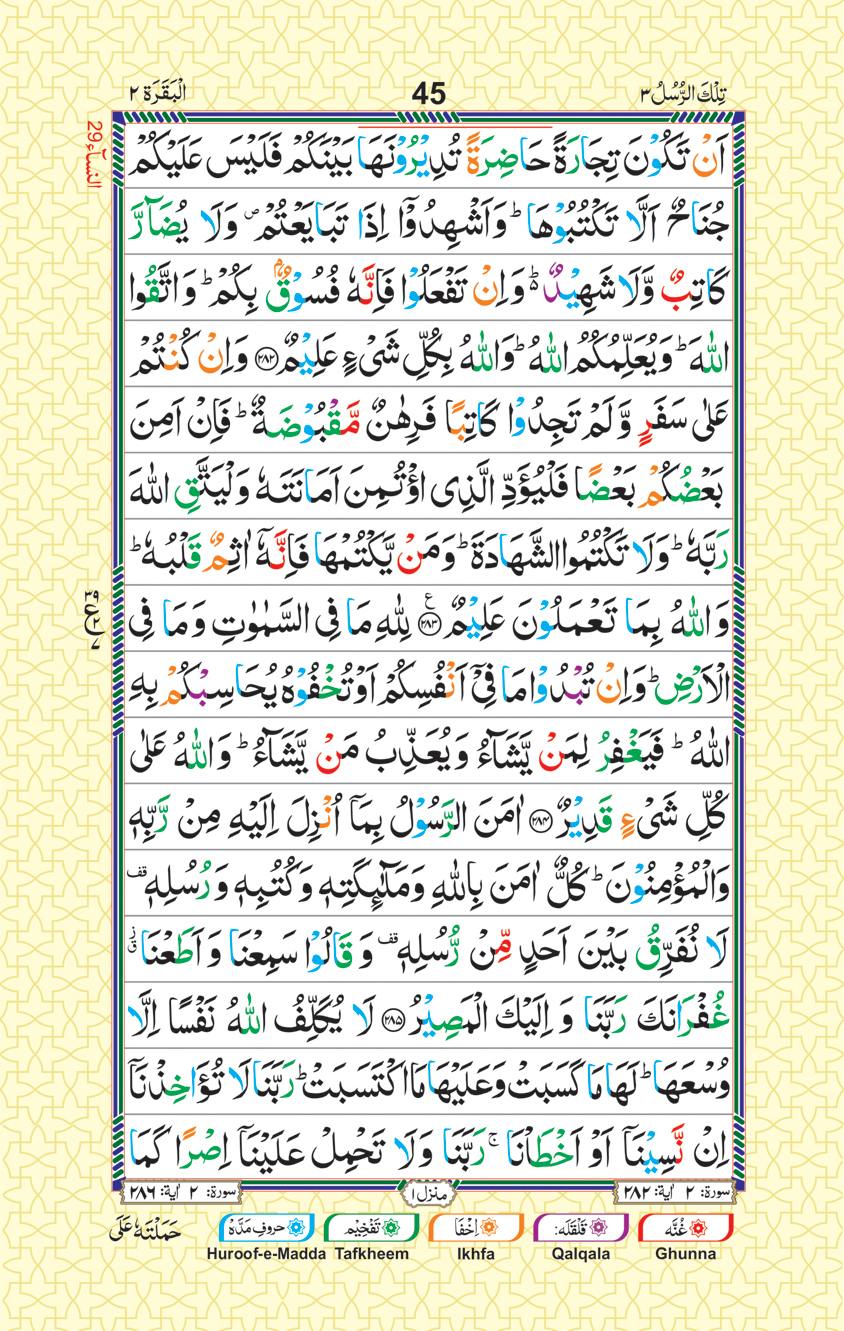 تِلْكَ الرُّسُلُ ٣
45
الْبَقَرَة ٢
النسآء 29
اَنْ تَكُوْنَ تِجَارَةً حَاضِرَةً تُدِيْرُوْنَهَا بَيْنَكُمْ فَلَيْسَ عَلَيْكُمْ
جُنَاحٌ اَلَّا تَكْتُبُوْهَا ؕ وَاَشْهِدُوْۤا اِذَا تَبَايَعْتُمْ ۪ وَلَا يُضَآرَّ
كَاتِبٌ وَّلَا شَهِيْدٌ ؕ۬ وَاِنْ تَفْعَلُوْا فَاِنَّهٗ فُسُوْقٌۢ بِكُمْ ؕ وَاتَّقُوا
اللّٰهَ ؕ وَيُعَلِّمُكُمُ اللّٰهُ ؕ وَاللّٰهُ بِكُلِّ شَىْءٍ عَلِيْمٌ ﴿٢٨٢﴾ وَاِنْ كُنْتُمْ
عَلٰى سَفَرٍ وَّلَمْ تَجِدُوْا كَاتِبًا فَرِهٰنٌ مَّقْبُوْضَةٌ ؕ فَاِنْ اَمِنَ
بَعْضُكُمْ بَعْضًا فَلْيُؤَدِّ الَّذِى اؤْتُمِنَ اَمَانَتَهٗ وَلْيَتَّقِ اللّٰهَ
رَبَّهٗ ؕ وَلَا تَكْتُمُوا الشَّهَادَةَ ؕ وَمَنْ يَّكْتُمْهَا فَاِنَّهٗۤ اٰثِمٌ قَلْبُهٗ ؕ
وَاللّٰهُ بِمَا تَعْمَلُوْنَ عَلِيْمٌ ﴿٢٨٣﴾ ع لِلّٰهِ مَا فِى السَّمٰوٰتِ وَمَا فِى
الْاَرْضِ ؕ وَاِنْ تُبْدُوْا مَا فِىْۤ اَنْفُسِكُمْ اَوْ تُخْفُوْهُ يُحَاسِبْكُمْ بِهِ
اللّٰهُ ؕ فَيَغْفِرُ لِمَنْ يَّشَآءُ وَيُعَذِّبُ مَنْ يَّشَآءُ ؕ وَاللّٰهُ عَلٰى
كُلِّ شَىْءٍ قَدِيْرٌ ﴿٢٨٤﴾ اٰمَنَ الرَّسُوْلُ بِمَاۤ اُنْزِلَ اِلَيْهِ مِنْ رَّبِّهٖ
وَالْمُؤْمِنُوْنَ ؕ كُلٌّ اٰمَنَ بِاللّٰهِ وَمَلٰٓئِكَتِهٖ وَكُتُبِهٖ وَرُسُلِهٖ قف
لَا نُفَرِّقُ بَيْنَ اَحَدٍ مِّنْ رُّسُلِهٖ قف وَقَالُوْا سَمِعْنَا وَاَطَعْنَا ز ق
غُفْرَانَكَ رَبَّنَا وَاِلَيْكَ الْمَصِيْرُ ﴿٢٨٥﴾ لَا يُكَلِّفُ اللّٰهُ نَفْسًا اِلَّا
وُسْعَهَا ؕ لَهَا مَا كَسَبَتْ وَعَلَيْهَا مَا اكْتَسَبَتْ ؕ رَبَّنَا لَا تُؤَاخِذْنَاۤ
اِنْ نَّسِيْنَاۤ اَوْ اَخْطَاْنَا ۚ رَبَّنَا وَلَا تَحْمِلْ عَلَيْنَاۤ اِصْرًا كَمَا
٣٩ ع ٢ ٧
سورة: ٢ اٰية: ٢٨٢
منزل ١
سورة: ٢ اٰية: ٢٨٦
غُنَّه
قَلْقَلَه:
اِخْفَا
تَفْخِيْم
حروفِ مَدَّه
حَمَلْتَهٗ عَلَى
Huroof-e-Madda Tafkheem Ikhfa Qalqala Ghunna